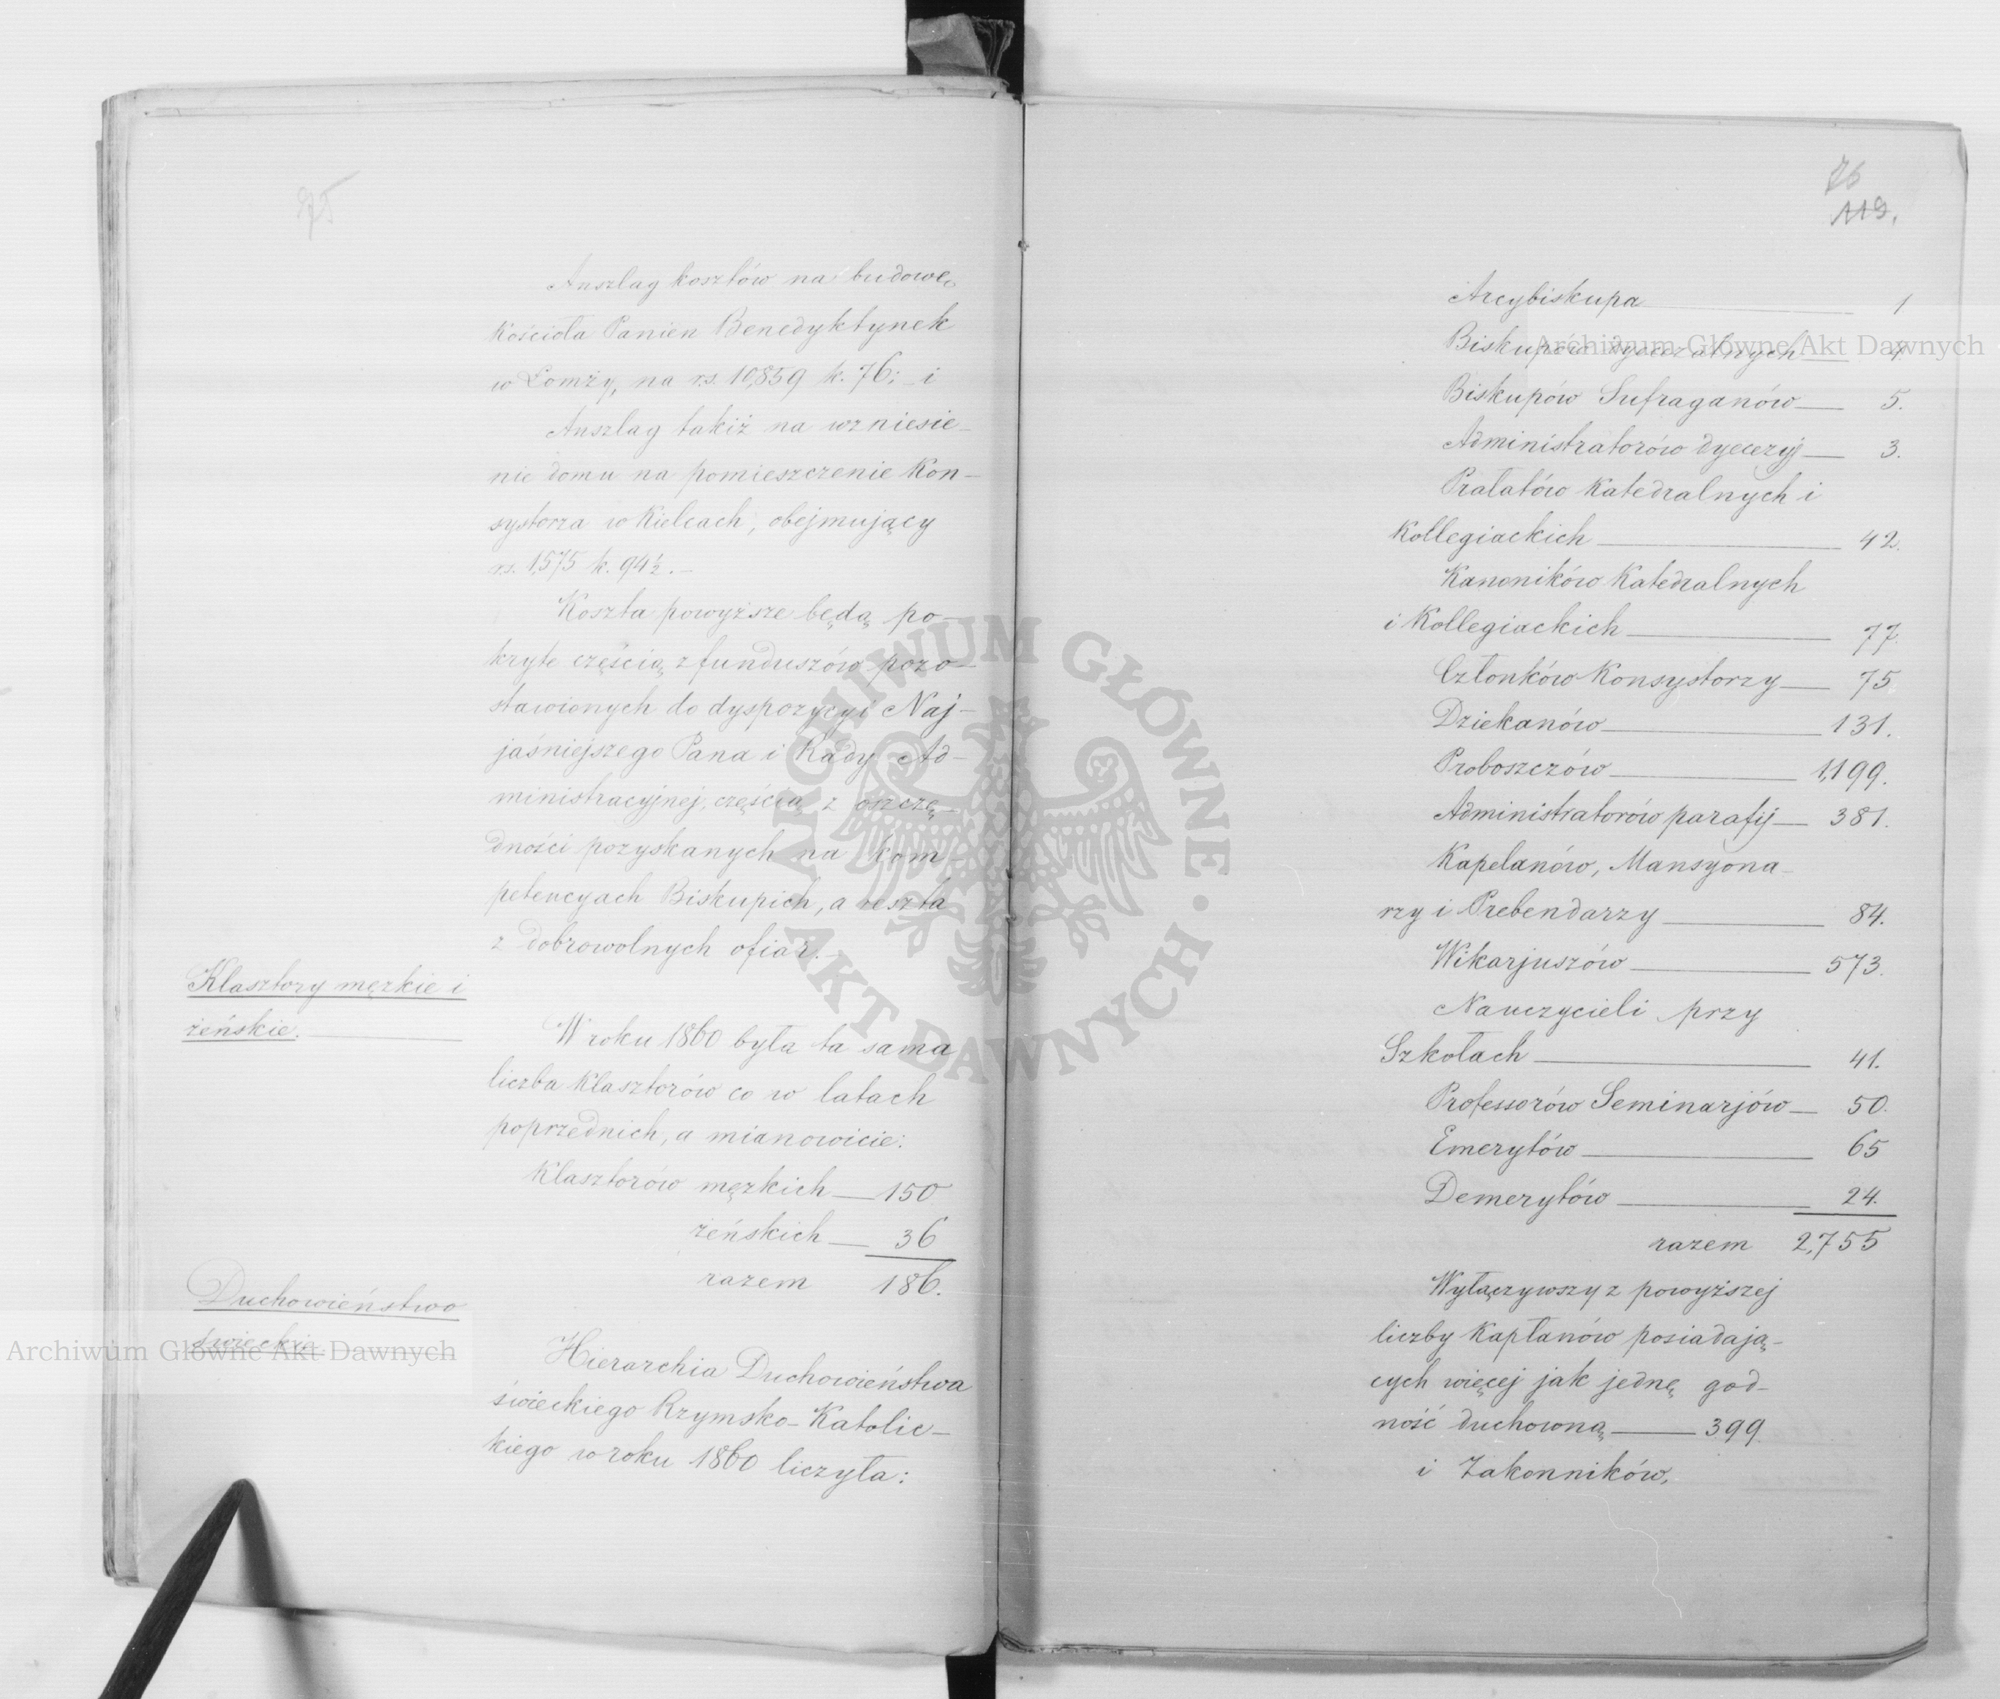 75
Anszlag kosztów na budowę
Kościoła Panien Benedyktynek
w Łomży, na rs. 10,859 k. 76; i
Anszlag takiż na wzniesie-
nie domu na pomieszczenie Kon-
systorza w Kielcach, obejmujący
rs. 1,575 k. 94½.-
Koszta powyższe będą po-
kryte częścią z funduszów pozo-
stawionych do dyspozycyi Naj-
jaśniejszego Pana i Rady Ad-
ministracyjnej, częścią z oszczę-
dności pozyskanych na kom-
petencyach Biskupich, a reszta
z dobrowolnych ofiar.-
Klasztory męzkie i
żeńskie.
W roku 1860 była ta sama
liczba Klasztorów co w latach
poprzednich, a mianowicie:
Klasztorów męzkich — 150
żeńskich — 36
razem 186.
Duchowieństwo
świeckie.
Hierarchia Duchowieństwa
świeckiego Rzymsko-Katolic-
kiego w roku 1860 liczyła:
76
119.
Arcybiskupa — 1
Biskupów dyecezalnych — 4
Biskupów Sufraganów — 5.
Administratorów dyecezyj — 3.
Prałatów Katedralnych i
Kollegiackich — 42.
Kanoników Katedralnych
i Kollegiackich — 77.
Członków Konsystorzy — 75.
Dziekanów — 131.
Proboszczów — 1,199.
Administratorów parafij — 381.
Kapelanów, Mansyona-
rzy i Prebendarzy — 84.
Wikarjuszów — 573.
Nauczycieli przy
Szkołach — 41.
Professorów Seminarjów — 50.
Emerytów — 65
Demerytów — 24.
razem 2,755
Wyłączywszy z powyższej
liczby Kapłanów posiadają-
cych więcej jak jednę god-
ność duchowną — 399
i Zakonników,
ARCHIWUM GŁÓWNE • AKT DAWNYCH •
Archiwum Główne Akt Dawnych
Archiwum Główne Akt Dawnych